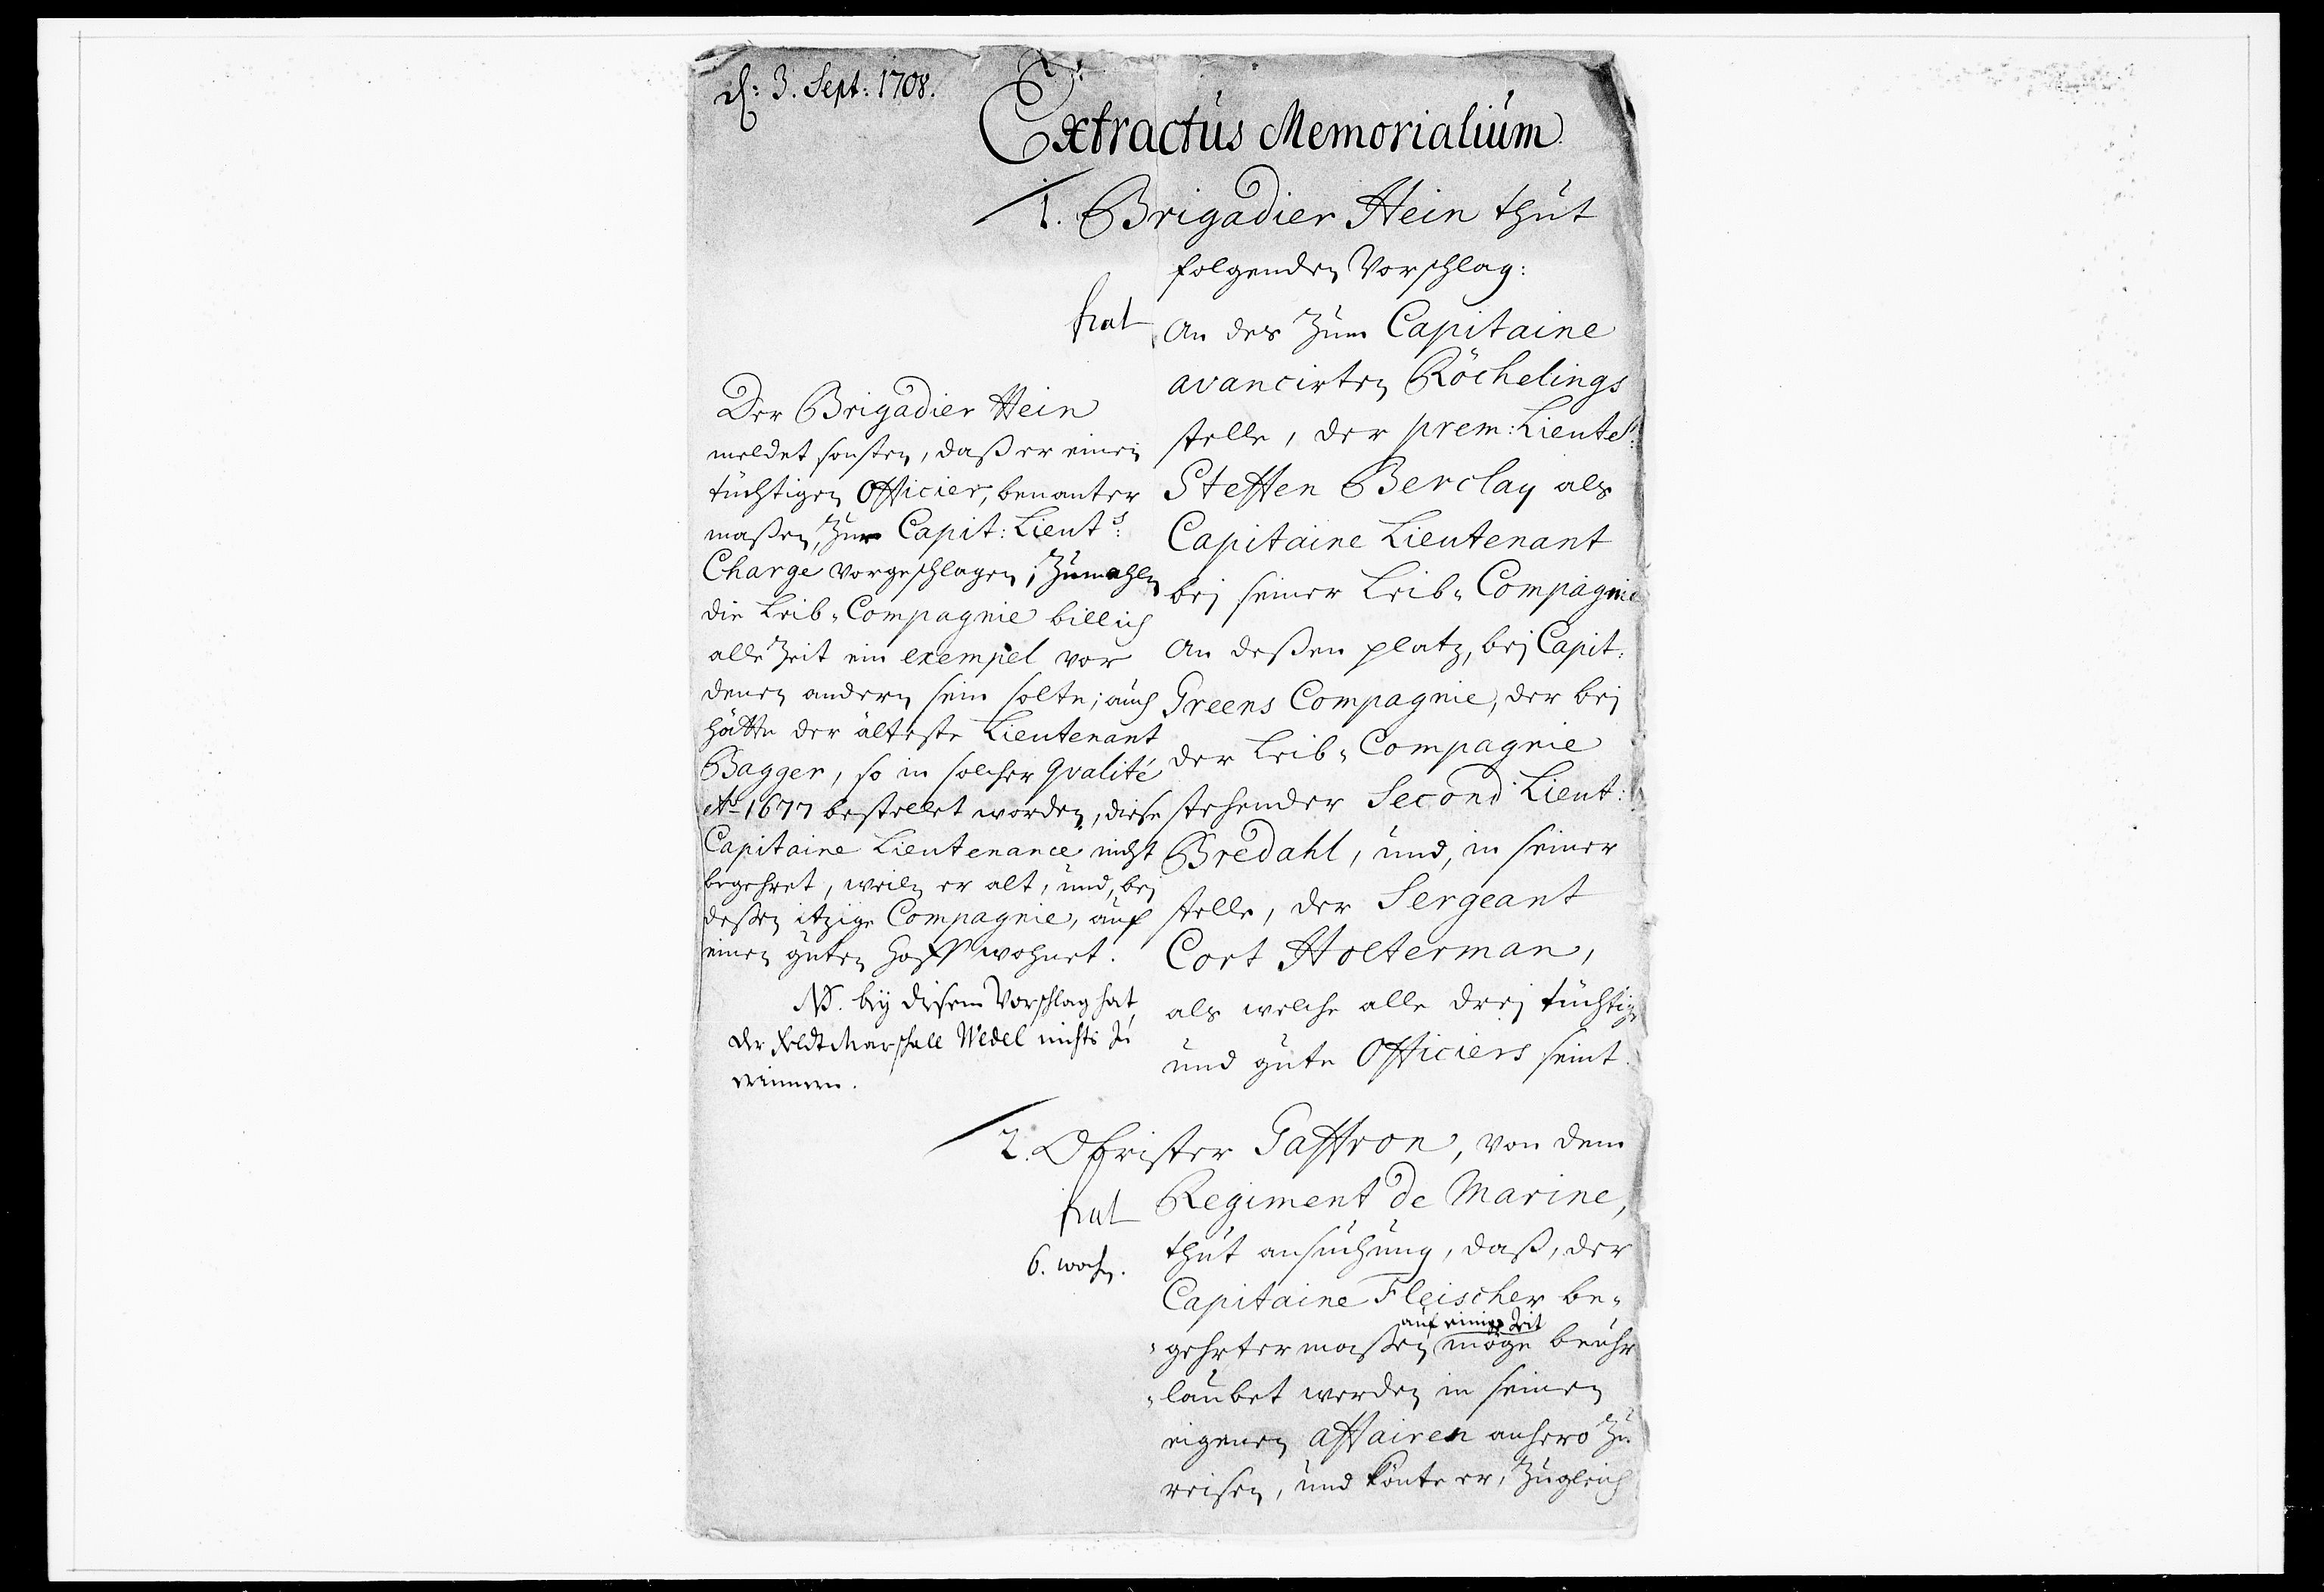 d: 3. Sept: 1708.
Extractus Memorialium
1. Brigadier Hein thut
folgenden Vorschlag:
fiat
An des zum Capitaine
avancirten Röchelings
stelle, der prem: Lieut:
Steffen Berclay als
Capitaine Lieutenant
bej seiner Leib-Compagnie
An deßen platz, bej Capit:
Greens Compagnie, der bej
der Leib-Compagnie
stehender Second Lieut:
Bredahl, und, in seiner
stelle, der Sergeant
Cort Holterman,
als welche alle drej tüchtige
und gute Officiers seint.
Der Brigadier Hein
meldet sonsten, daß er einen
tüchtigen Officier, benanter
maßen, zur Capit: Lieuts:
Charge vorgeschlagen; zumahlen
die Leib-Compagnie billich
alle Zeit ein exempel vor
denen andern sein solte; auch
hätte der älteste Lieutenant
Bagger, so in solcher qvalité
Ao 1677 bestellet worden, diese
Capitaine Lieutenance nicht
begehret, weiln er alt, und, bej
deßen itzige Compagnie, auf
einen guten Hoff wohnet.
NB. beÿ diesem Vorschlag hat
der Feldt Marschall Wedel nichts zu
erinnern.
2. Obrister Gaffron, von dem
Regiment de Marine,
fiat
6. woch.
thut ansuchung, daß, der
Capitaine Fleischer be-
auf einige Zeit
-gehrter maßen möge beuhr
-laubet werden in seinen
eigenen affairen anhero zu
reisen, und könte er, zugleich